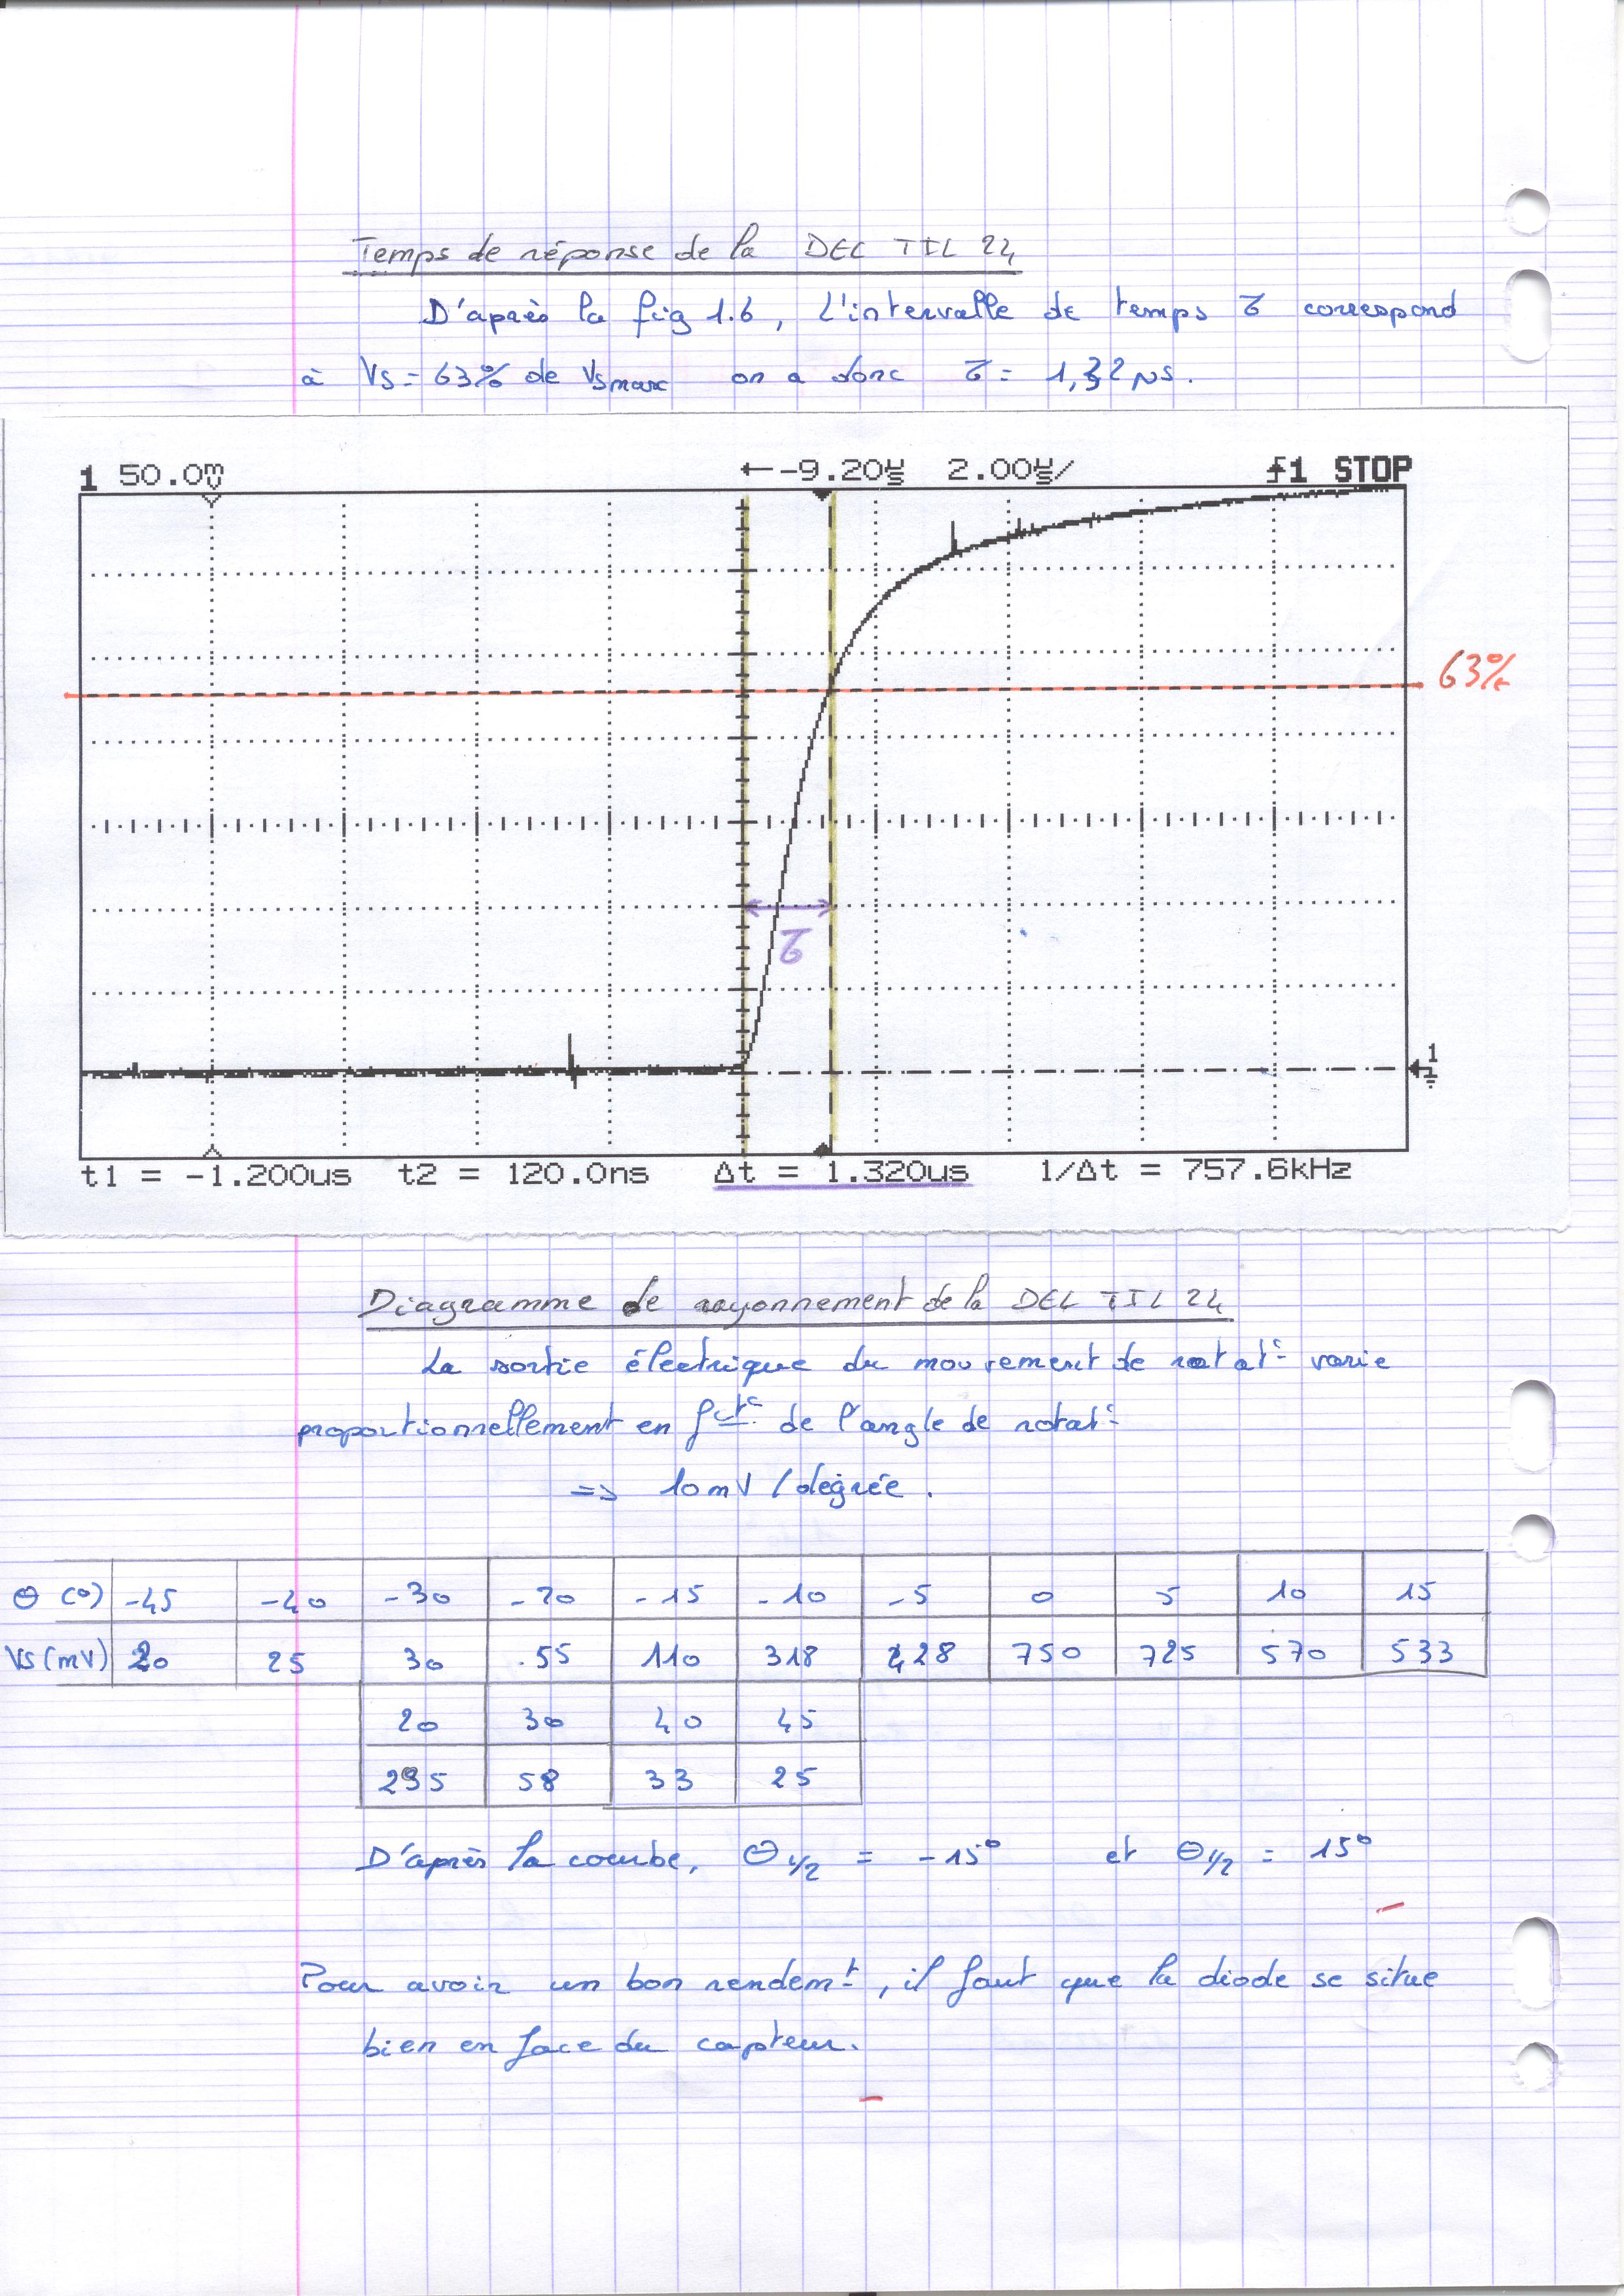 Temps de réponse de la DEL TIL 24
D'après la fig 1.6, L'intervalle de temps τ correspond
à Vs = 63% de Vsmax on a donc τ = 1,32 µs.
1 50.0mV ←-9.20us 2.00us/ ƒ1 STOP
63%
τ
1
t1 = -1.200us t2 = 120.0ns Δt = 1.320us 1/Δt = 757.6kHz
Diagramme de rayonnement de la DEL TIL 24
La sortie électrique du mouvement de rotat° varie
proportionnellement en fct° de l'angle de rotat°
=> 10mV / degrée.
θ (°) -45 -40 -30 -20 -15 -10 -5 0 5 10 15
Vs (mV) 20 25 30 55 110 318 428 750 725 570 533
20 30 40 45
295 58 33 25
D'après la courbe, θ1/2 = -15° et θ1/2 = 15°
Pour avoir un bon rendemt, il faut que la diode se situe
bien en face du capteur.